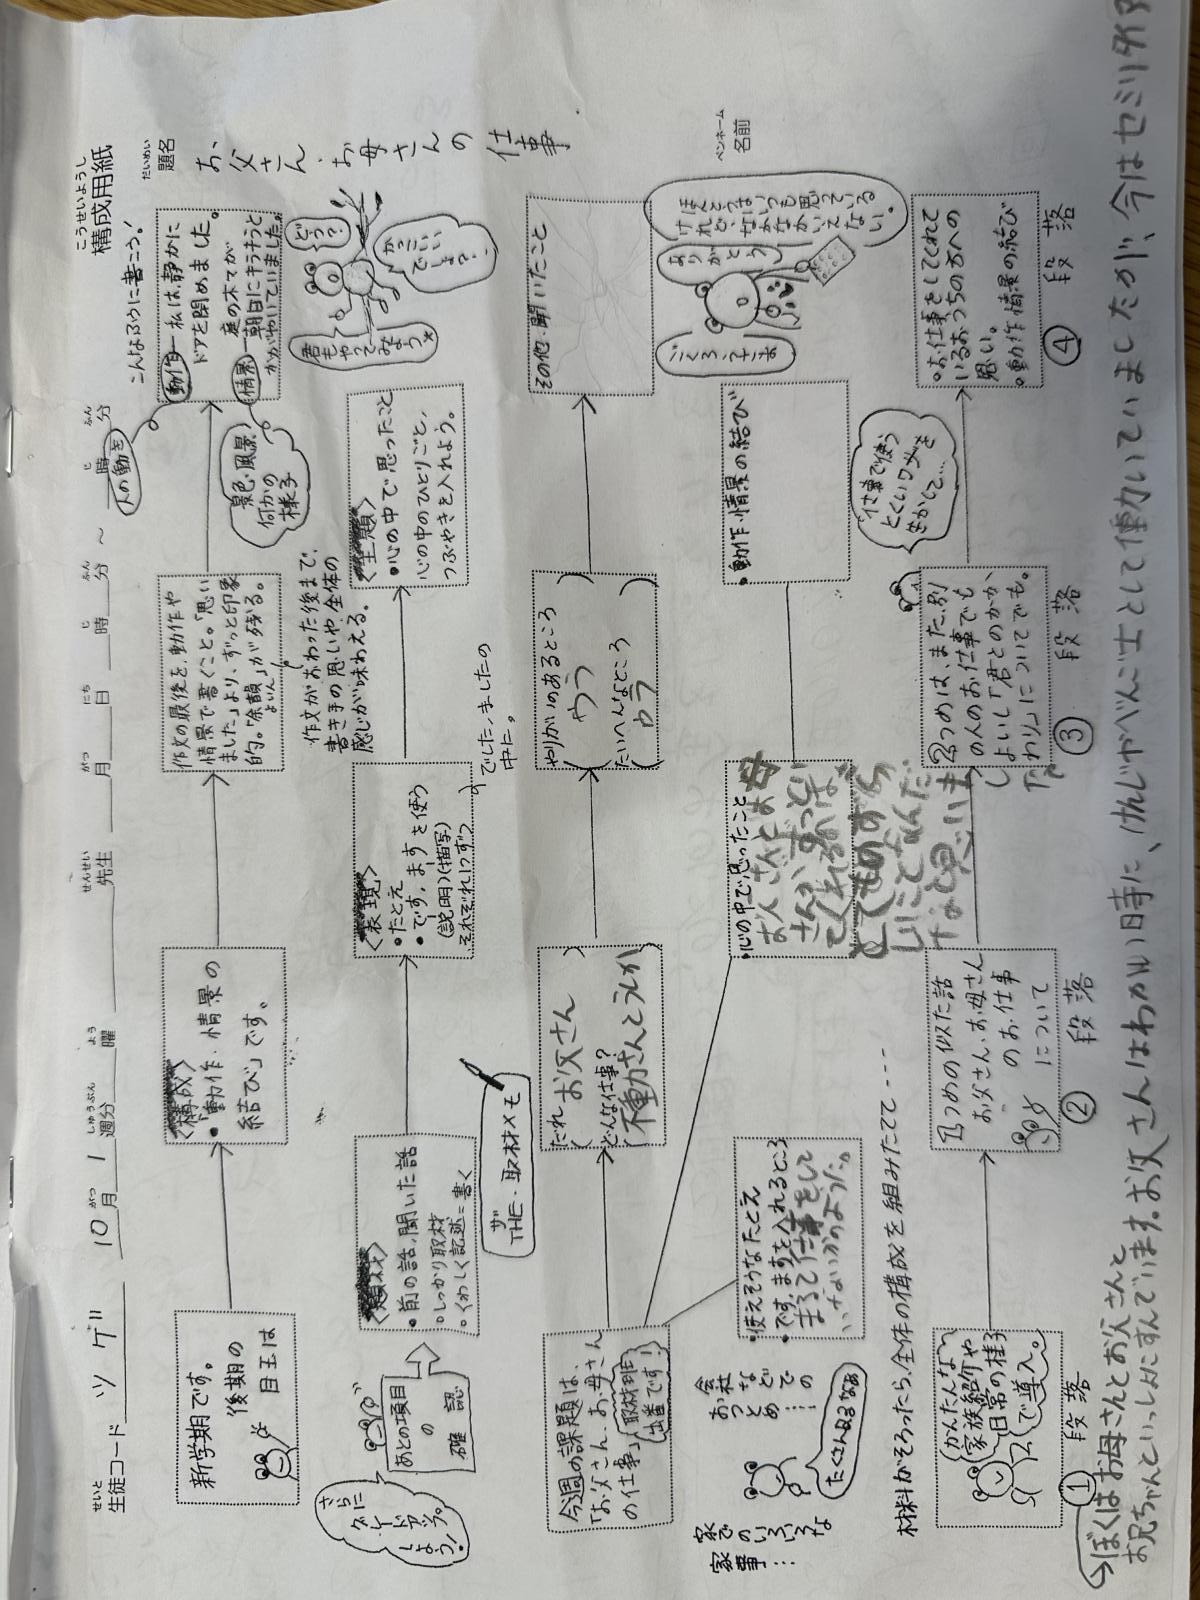 こうせいようし
構成用紙
せいと
生徒コード ツゲ 10月 1週分 曜 先生 月 日 時 分 〜 時 分
だいめい
題名
お、父さん・お母さんの仕事
ペンネーム
名前
こんなふうに書こう!
新学期です。
後期の
目玉は
〈構成〉
・「動作・情景の
結び」です。
作文の最後を、動作や
情景で書くこと。「思い
ました」より、ずっと印象
的。「余韻」が残る。
よいん
作文がおわった後まで、
書き手の思いや全体の
感じが味わえる。
人の動き
動作 私は、静かに
ドアを閉めました。
情景 庭の木てが
朝日にキラキラと
かがやいていました。
景色・風景
何かの
様子
さらに
グレードアップ
しよう!
あとの項目
の
確認
〈題材〉
・前の話、聞いた話
・しっかり取材
・くわしく記述=書く
〈表現〉
・たとえ
・です、ますを使う
(説明)(描写)
それぞれ1つずつ
でした、ましたの
中に。
〈主題〉
・心の中で思ったこと
心の中のひとりごと、
つぶやきを入れよう。
君もやってみよう
どう?
かっこいい
でしょ?
ザ
THE・取材メモ
今週の課題は、
「お父さん、お母さん
の仕事」
取材班
出番です!
だれ
(お父さん)
どんな仕事?
やりがいのあるところ
たいへんなところ
その他・聞いたこと
家でのいろいろな
家事…
会社
などでの
おつとめ…
たくさんあるなあ
・使えそうなたとえ
・です、ますを入れるところ
まるで仕事をして
いないかのようだった。
・心の中で思ったこと
・動作・情景の結び
ごくろうさま
ありがとう
ほんとうはいつも思っている
けれど、なかなかいえない。
材料がそろったら、全体の構成を組みたてて----
かんたんな
家族紹介や
日常の様子
で導入。
① 段落
1つめの似た話
お父さん、お母さん
のお仕事
について
② 段落
2つめは、また、別
の人のお仕事でも
よいし「君とのかか
わり」についてでも。
③ 段落
仕事で使う
とくいワザを
生かして…
・お仕事をしてくれて
いるおうちの方への
思い。
・動作・情景の結び
④ 段落
ぼくはお母さんとお父さんと
お兄ちゃんといっしょにすんでいます。お父さんはわかい時に、けんじゃやべんご士として働いていましたが、今はセミリタイア